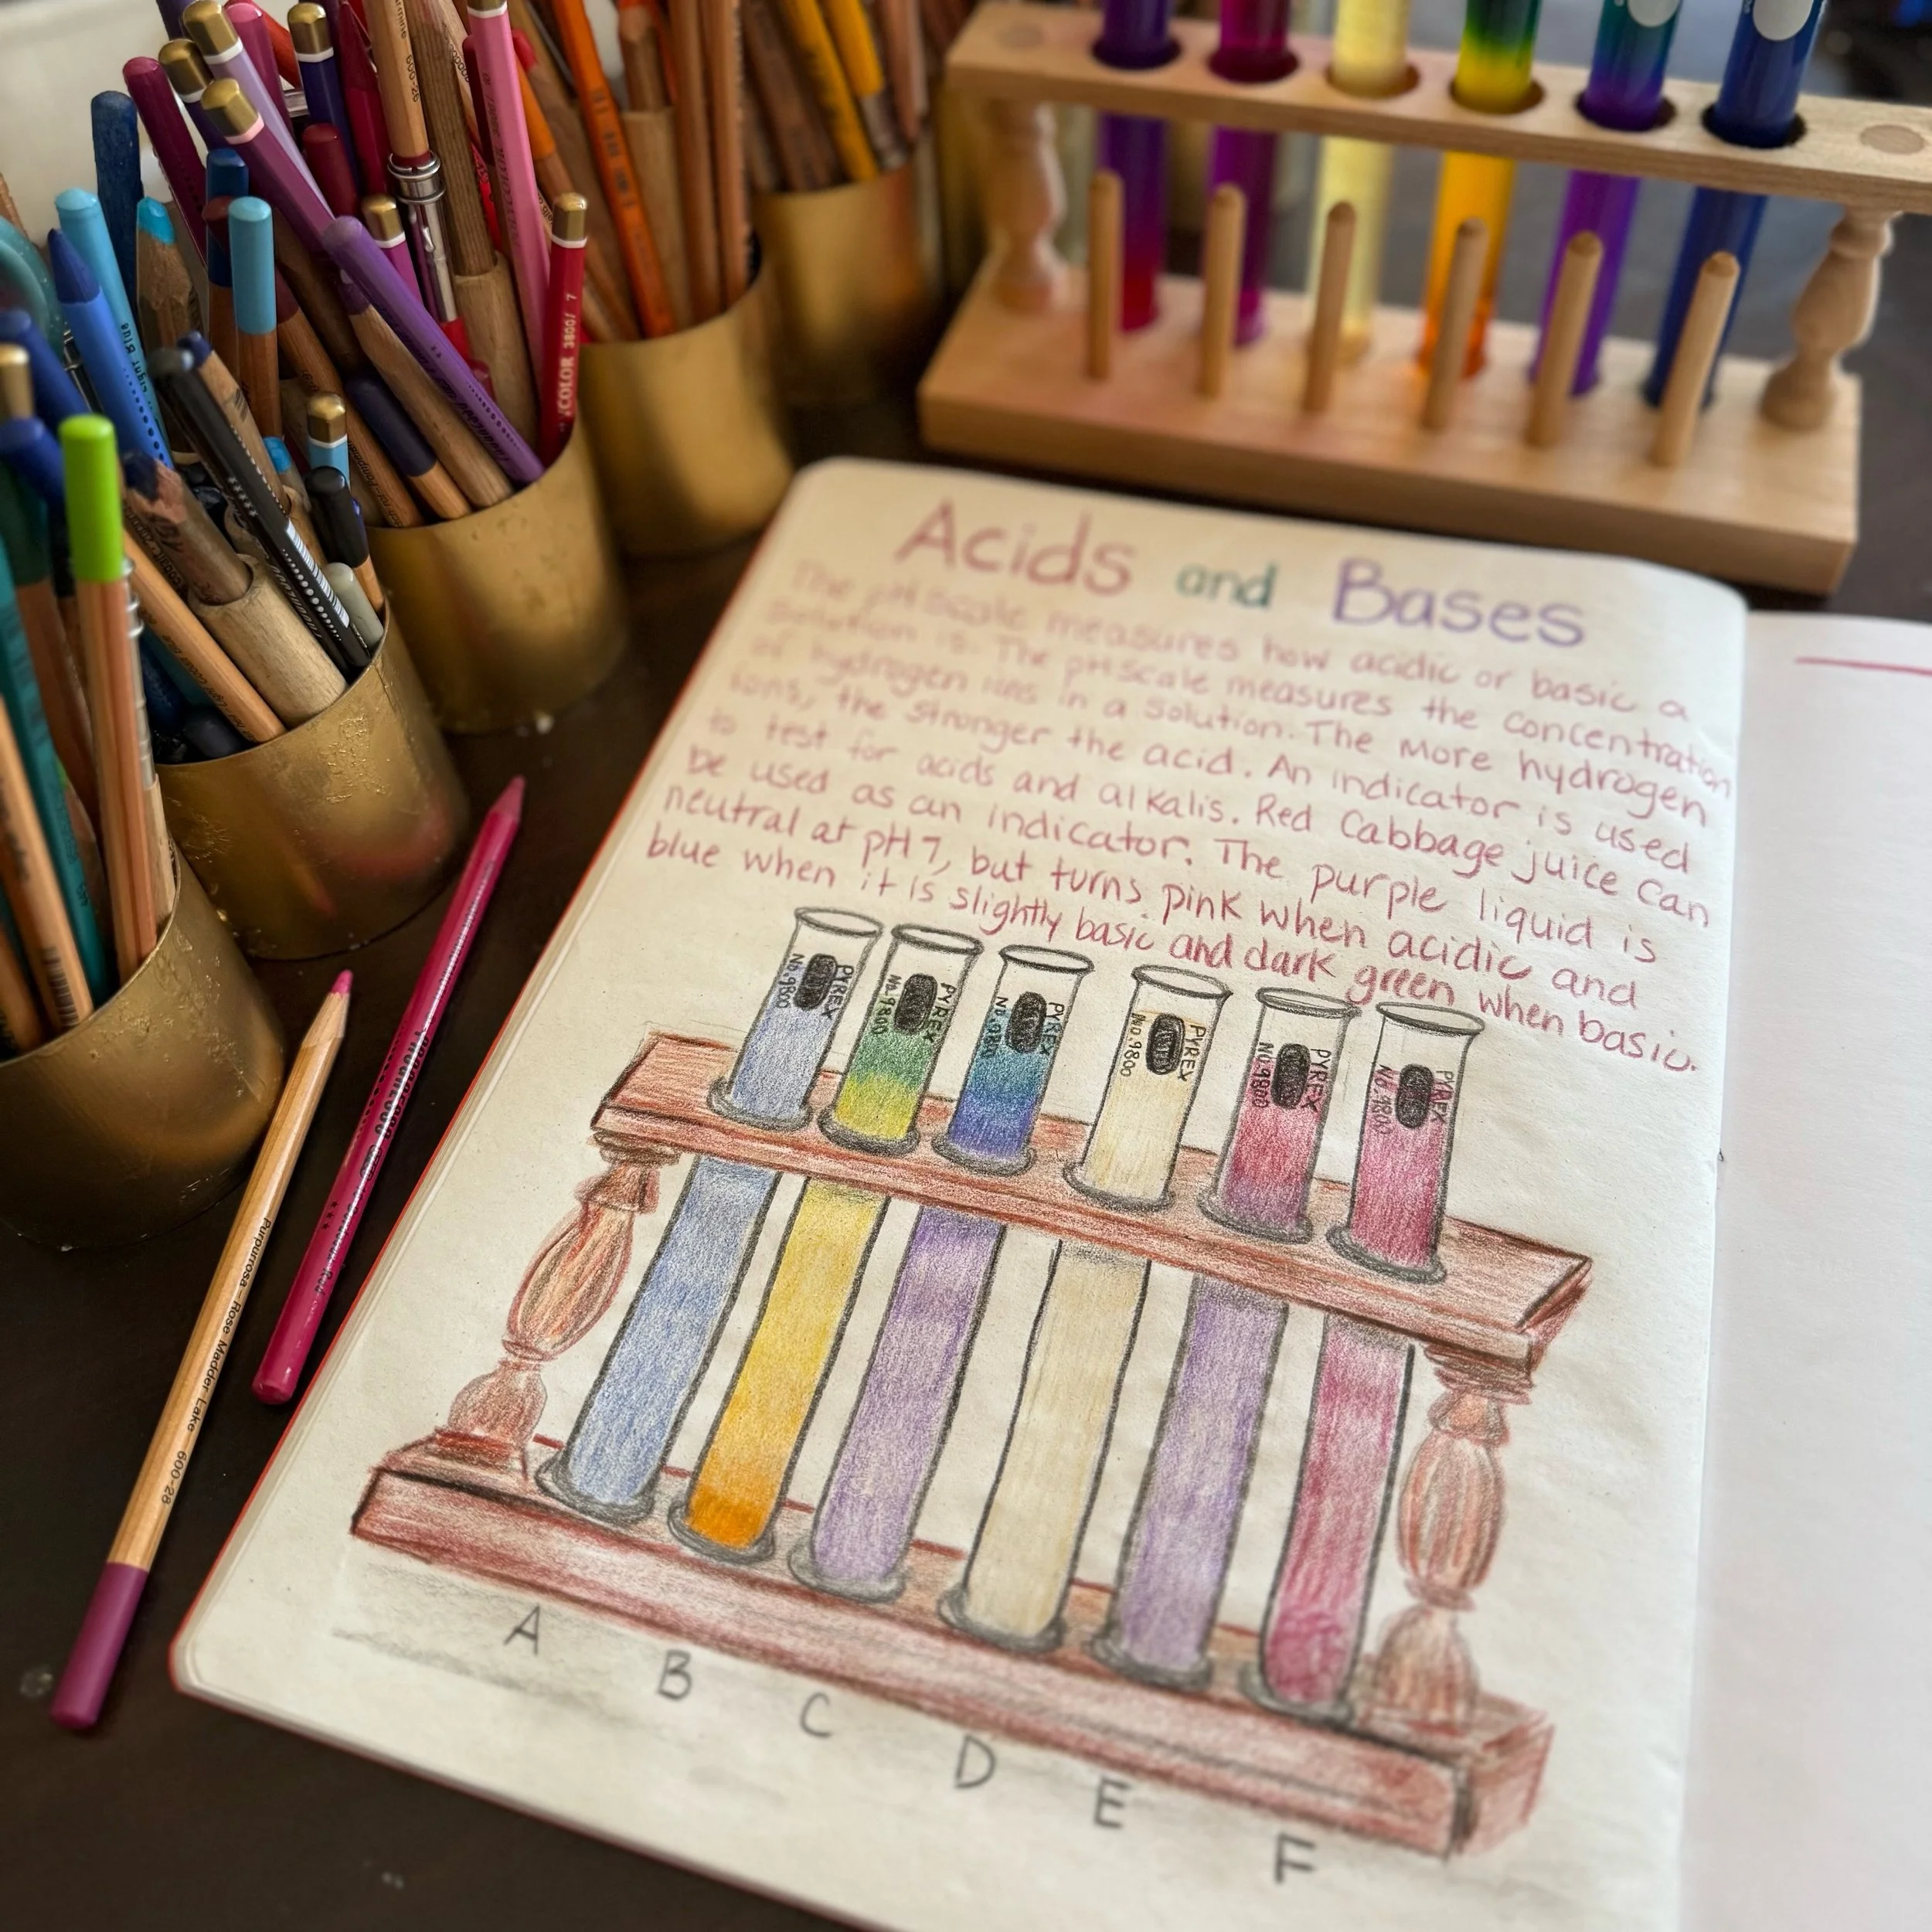 Acids and Bases
The pH scale measures how acidic or basic a
solution is. The pH scale measures the concentration
of hydrogen ions in a solution. The more hydrogen
ions, the stronger the acid. An indicator is used
to test for acids and alkalis. Red Cabbage juice can
be used as an indicator. The purple liquid is
neutral at pH 7, but turns pink when acidic and
blue when it is slightly basic and dark green when basic.
PYREX
No.9800
PYREX
No.9800
PYREX
No.9800
PYREX
No.9800
PYREX
No.9800
PYREX
No.9800
A
B
C
D
E
F
Purpurrosa - Rose Madder Lake 600-28
COLOR 3800/ 7
Light Blue